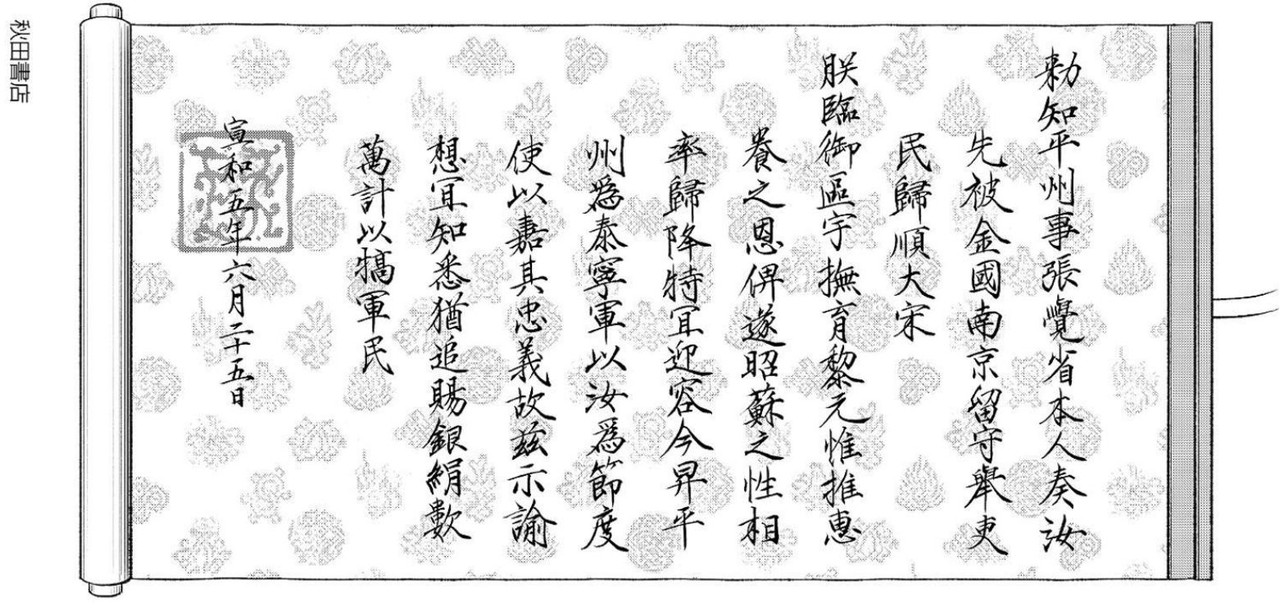 勅知平州事張覺省本人奏汝
先被金國南京留守舉吏
民歸順大宋
朕臨御區宇撫育黎元惟推惠
養之恩俾遂昭蘇之性相
率歸降特宜迎容今昇平
州爲泰寧軍以汝爲節度
使以嘉其忠義故茲示諭
想宜知悉猶追賜銀絹數
萬計以犒軍民
宣和五年六月二十五日
秋田書店